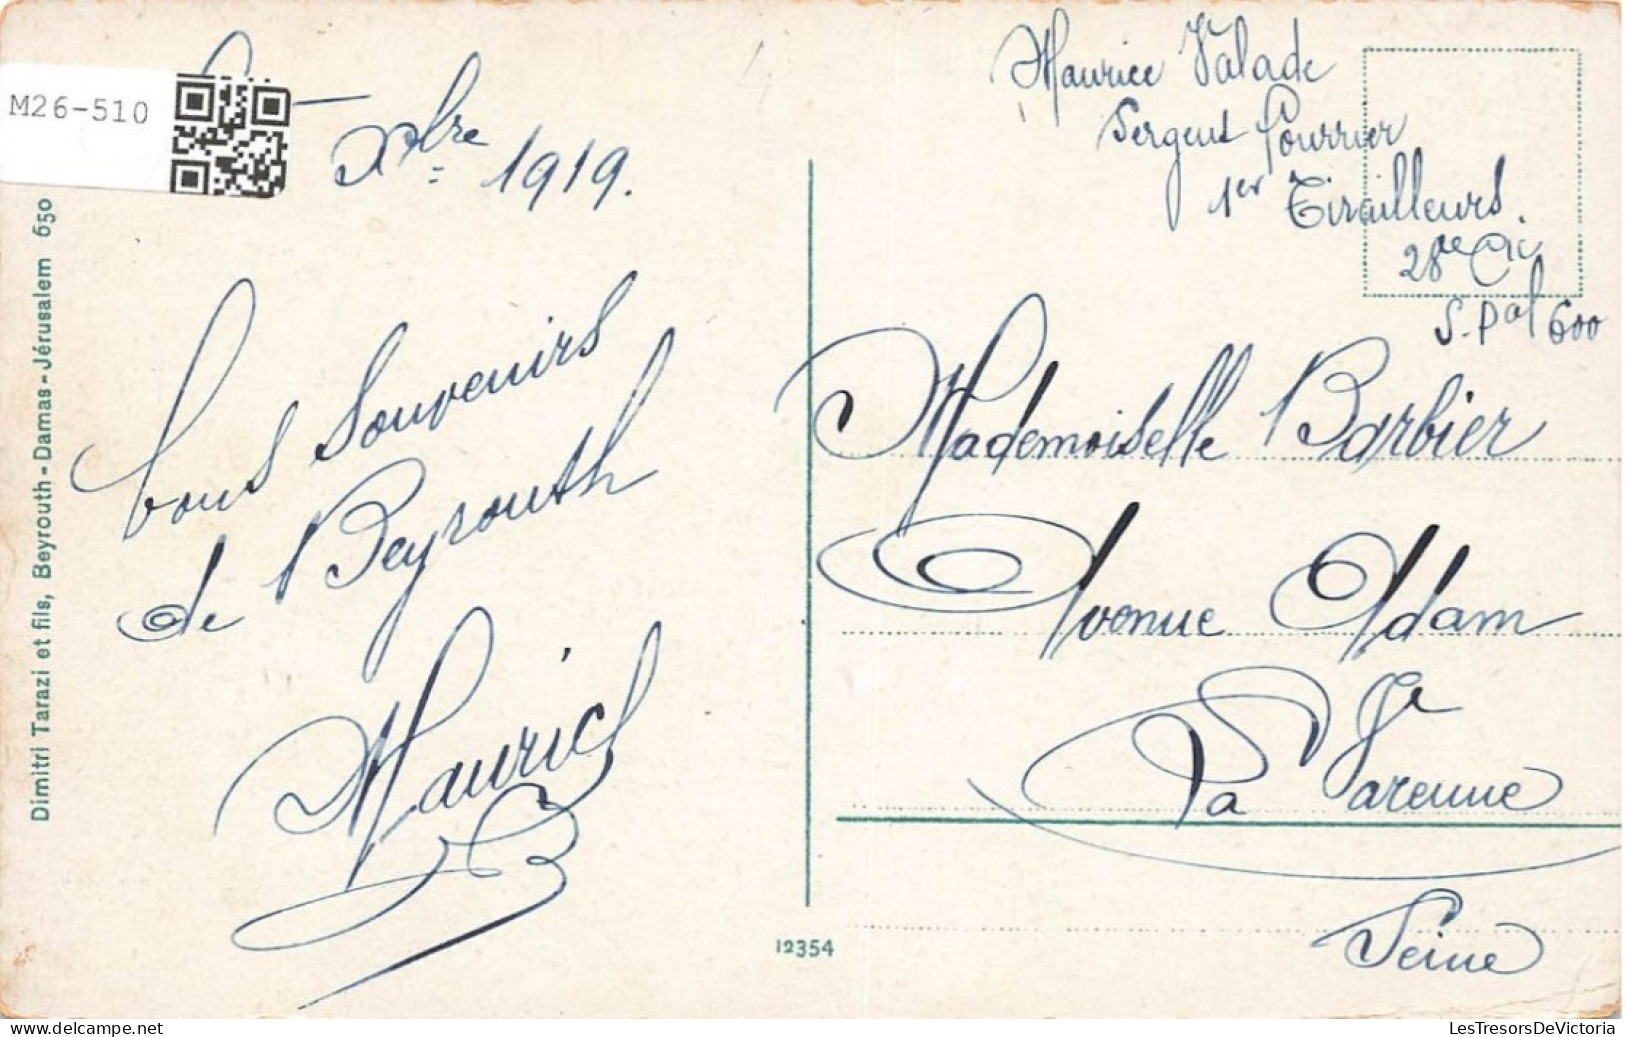 M26-510
Xbre 1919.
bons Souvenirs
de Beyrouth
Maurice
Dimitri Tarazi et fils, Beyrouth-Damas-Jérusalem 650
12354
Maurice Valade
Sergent Fourrier
1er Tirailleurs.
28me Cie
S. Pal 600
Mademoiselle Barbier
Avenue Adam
La Varenne
St
Seine
LesTresorsDeVictoria
www.delcampe.net